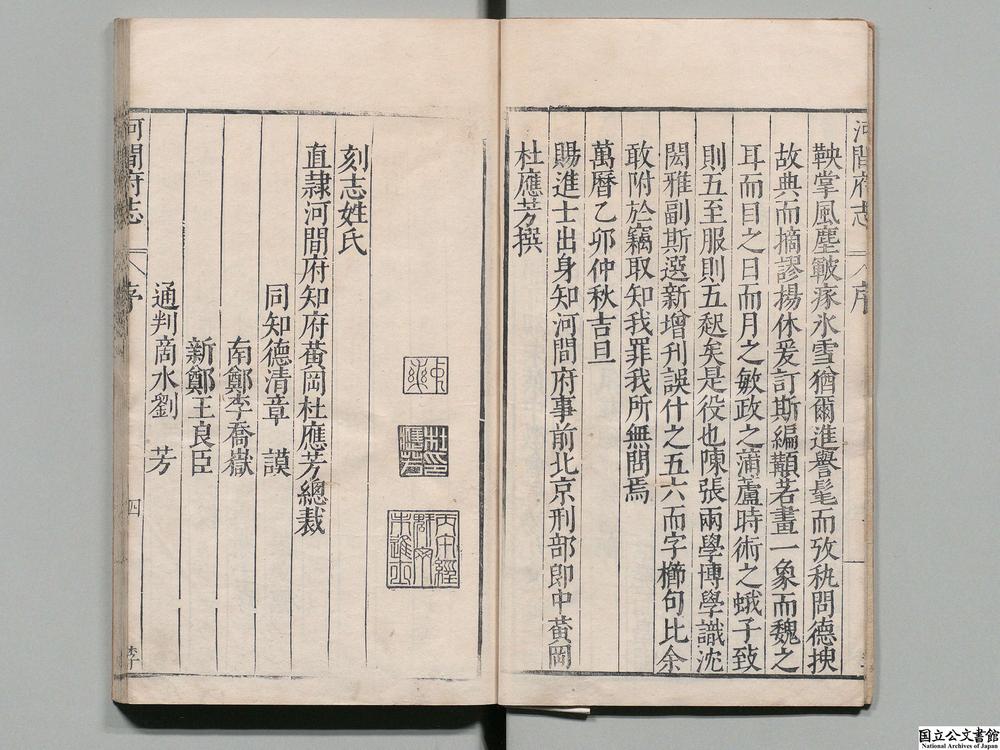 鞅掌風塵皸瘃氷雪猶爾進譽髦而攷秇問德掞
故典而摘謬揚休爰訂斯編顜若畫一象而魏之
耳而目之日而月之敏政之蒲蘆時術之蛾子致
則五至服則五起矣是役也陳張兩學博學識沈
閎雅副斯選新增刊誤什之五六而字櫛句比余
敢附於竊取知我罪我所無問焉
萬曆乙卯仲秋吉旦
賜進士出身知河間府事前北京刑部郎中黃岡
杜應芳撰
河間府志
序
刻志姓氏
直隷河間府知府黃岡杜應芳總裁
同知德清章 謨
南鄭李喬嶽
新鄭王良臣
通判商水劉 芳
河間府志
序
四
李
国立公文書館
National Archives of Japan